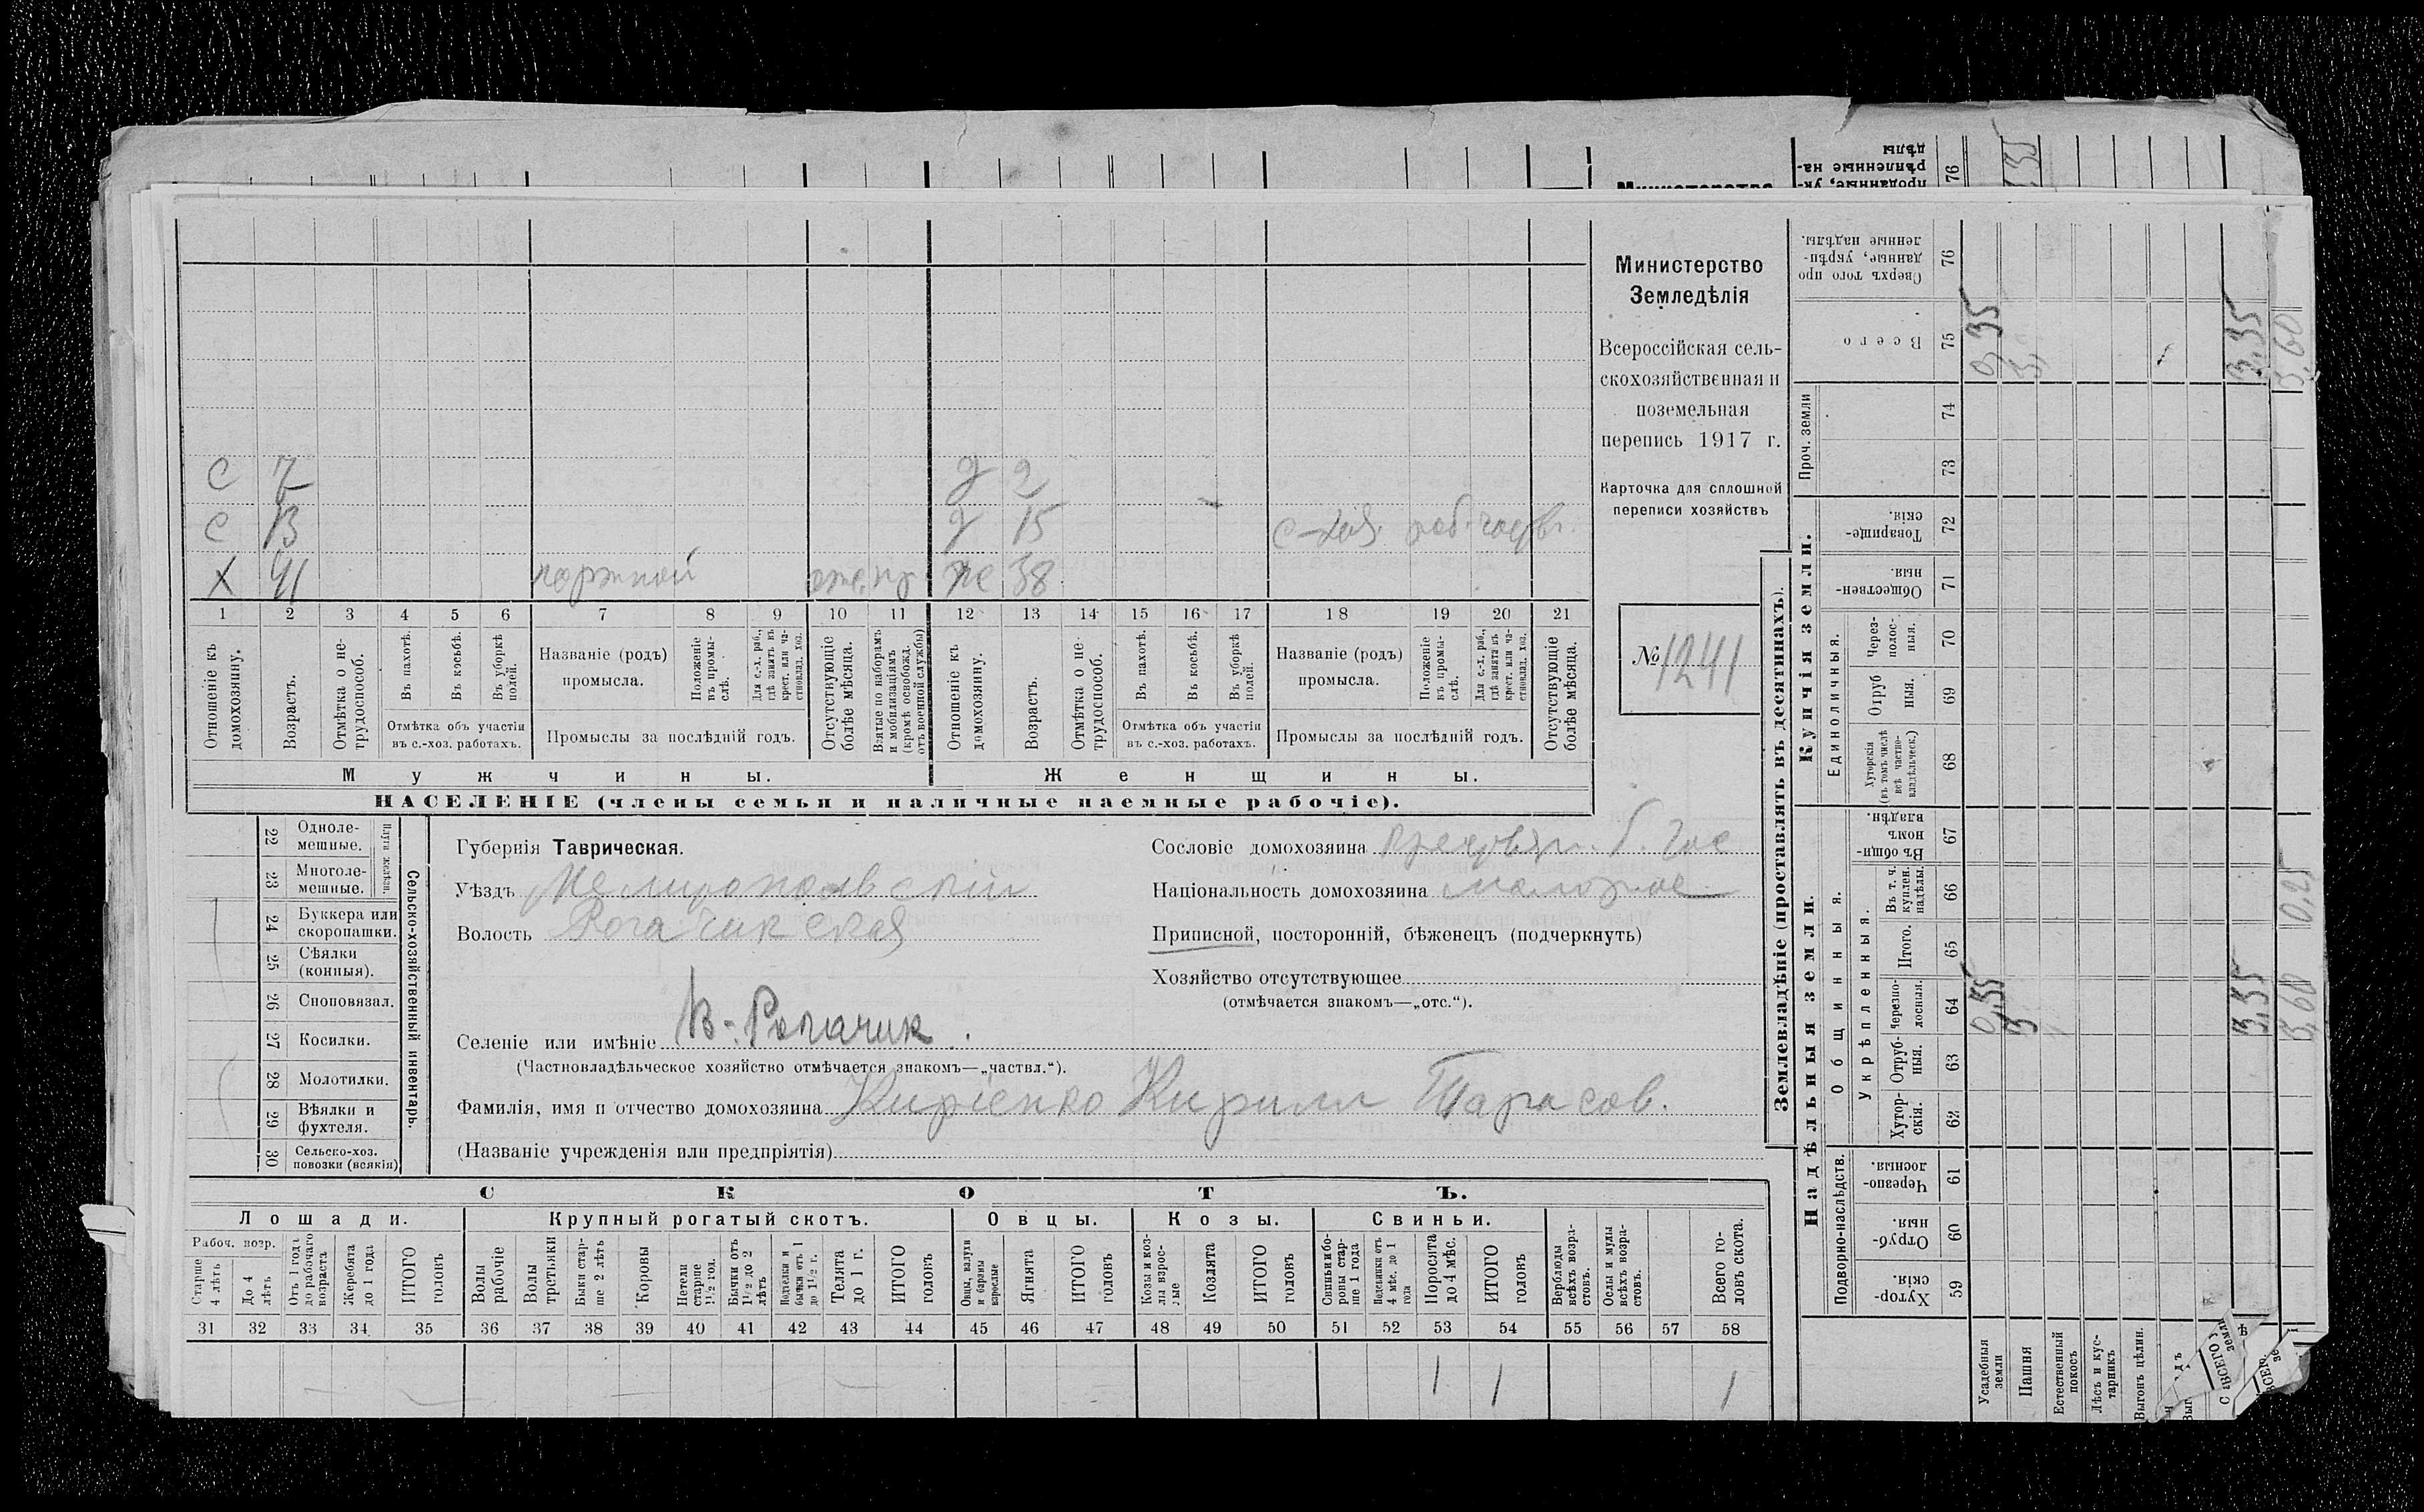 Министерство
Земледѣлія
Всероссійская сель-
скохозяйственная и
поземельная
перепись 1917 г.
Карточка для сплошной
переписи хозяйствъ
№ 1241
С 7
С 13
Х 41
д 2
д 15
же 38
1 2 3 4 5 6 7 8 9 10 11 12 13 14 15 16 17 18 19 20 21
Отношеніе къ домохозяину.
Возрастъ.
Отмѣтка о не-трудоспособ.
Въ пахотѣ.
Въ косьбѣ.
Въ уборкѣ полей.
Отмѣтка объ участіи
въ с.-хоз. работахъ.
Названіе (родъ)
промысла.
Положеніе въ промы-слѣ.
Для с.-х. раб., гдѣ занятъ въ крест. или ча-стновлад. хоз.
Промыслы за послѣдній годъ.
Отсутствующіе болѣе мѣсяца.
Взятые по наборамъ и мобилизаціямъ (кромѣ освобожд. отъ военной службы)
Отношеніе къ домохозяину.
Возрастъ.
Отмѣтка о не-трудоспособ.
Въ пахотѣ.
Въ косьбѣ.
Въ уборкѣ полей.
Отмѣтка объ участіи
въ с.-хоз. работахъ.
Названіе (родъ)
промысла.
Положеніе въ промы-слѣ.
Для с.-х. раб., гдѣ занята въ крест. или ча-стновлад. хоз.
Промыслы за послѣдній годъ.
Отсутствующіе болѣе мѣсяца.
Мужчины.
Женщины.
НАСЕЛЕНІЕ (члены семьи и наличные наемные рабочіе).
Сельско-хозяйственный инвентарь.
22 Одноле-мешные.
23 Многоле-мешные.
24 Буккера или скоропашки.
25 Сѣялки (конныя).
26 Сноповязал.
27 Косилки.
28 Молотилки.
29 Вѣялки и фухтеля.
30 Сельско-хоз. повозки (всякія)
Губернія Таврическая.
Уѣздъ Мелитопольскій
Волость Рогачикская
Селеніе или имѣніе В-Рогачик.
(Частновладѣльческое хозяйство отмѣчается знакомъ—„частвл.“).
Фамилія, имя и отчество домохозяина Киріенко Кирилл Тарасов.
(Названіе учрежденія или предпріятія)
Сословіе домохозяина
Національность домохозяина малорос
Приписной, посторонній, бѣженецъ (подчеркнуть)
Хозяйство отсутствующее
(отмѣчается знакомъ—„отс.“).
СКОТЪ.
Лошади.
Крупный рогатый скотъ.
Овцы.
Козы.
Свиньи.
Рабоч. возр.
Старше 4 лѣтъ
До 4 лѣтъ
Отъ 1 года до рабочаго возраста
Жеребята до 1 года
ИТОГО головъ
Волы рабочіе
Волы третьяки
Быки стар-ше 2 лѣтъ
Коровы
Нетели старше 1½ год.
Бычки отъ 1½ до 2 лѣтъ
Подтелки и бычки отъ 1 до 1½ г.
Телята до 1 г.
ИТОГО головъ
Овцы, валухи и бараны взрослые
Ягнята
ИТОГО головъ
Козы и коз-лы взрос-лые
Козлята
ИТОГО головъ
Свиньи и бо-ровы стар-ше 1 года
Подсвинки отъ 4 мѣс. до 1 года
Поросята до 4 мѣс.
ИТОГО головъ
Верблюды всѣхъ возра-стовъ.
Ослы и мулы всѣхъ возра-стовъ.
Всего го-ловъ скота.
31 32 33 34 35 36 37 38 39 40 41 42 43 44 45 46 47 48 49 50 51 52 53 54 55 56 57 58
1 1 1
Землевладѣніе (проставлять въ десятинахъ).
Надѣльныя земли.
Купчія земли.
Проч. земли
Подворно-наслѣдств.
Общинныя.
Укрѣпленныя.
Единоличныя.
59 Хутор-скія.
60 Отруб-ныя.
61 Черезпо-лосныя.
62 Хутор-скія.
63 Отруб-ныя.
64 Черезпо-лосныя.
65 Итого.
66 Въ т. ч. куплен. надѣлы.
67 Въ общи-номъ владѣн.
68 Хуторскія (въ томъ числѣ всѣ частно-владѣльческ.)
69 Отруб ныя.
70 Через-полос-ныя.
71 Обществен-ныя.
72 Товарище-скія.
73
74
75 Всего
76 Сверхъ того про данные, укрѣп-ленные надѣлы.
Усадебныя земли
Пашня
Естественный покосъ
Лѣсъ и кус-тарникъ
Выгонъ цѣлин.
0,35
3
3,35
3,60
0,35
3,
3,35
3,60
0,25